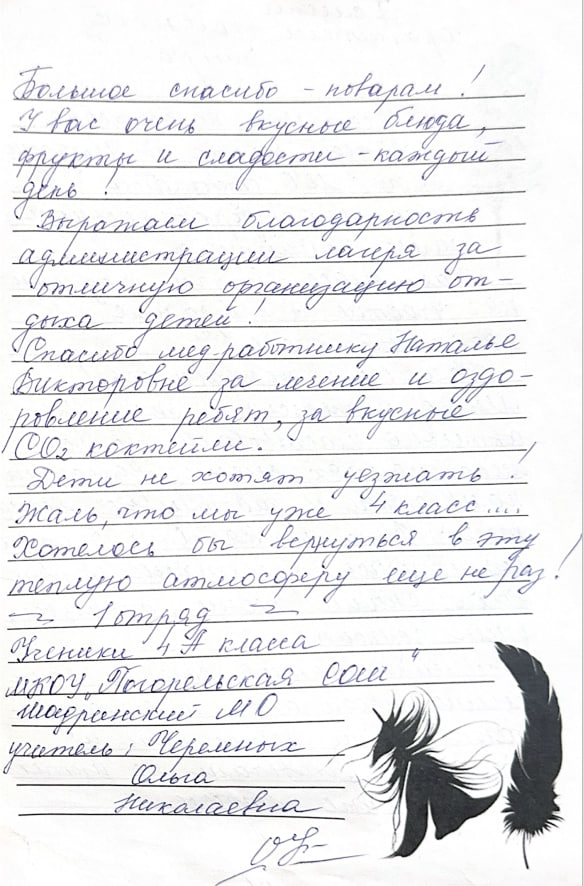 Большое спасибо - поварам!
У вас очень вкусные блюда,
фрукты и сладости - каждый
день!
Выражаем благодарность
администрации лагеря за
отличную организацию от-
дыха детей!
Спасибо мед-работнику Наталье
Викторовне за лечение и оздо-
ровление ребят, за вкусные
СО₂ коктейли.
Дети не хотят уезжать!
Жаль, что мы уже 4 класс....
Хотелось бы вернуться в эту
теплую атмосферу еще не раз!
~ 1 отряд ~
Ученики 4 А класса
МКОУ „Погорельская СОШ"
Шадринский МО
учитель: Черемных
Ольга
Николаевна